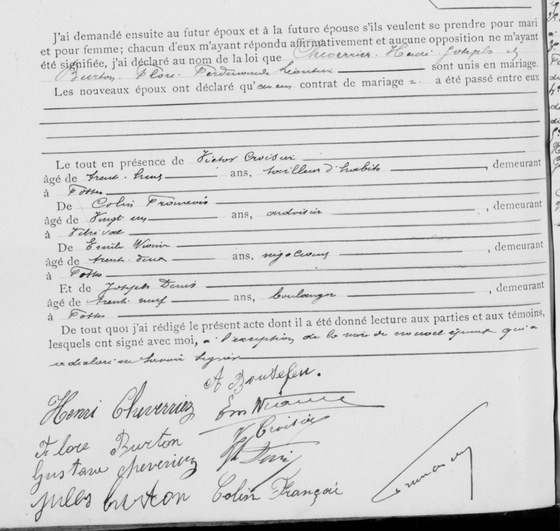 J'ai demandé ensuite au futur époux et à la future épouse s'ils veulent se prendre pour mari
et pour femme; chacun d'eux m'ayant répondu affirmativement et aucune opposition ne m'ayant
été signifiée, j'ai déclaré au nom de la loi que Cheverrier Henri Joseph et
Burton Flore Ferdinande Léontine sont unis en mariage.
Les nouveaux époux ont déclaré qu'aucun contrat de mariage n. a été passé entre eux
Le tout en présence de Victor Croisier
âgé de ans, tailleur d'habits, demeurant
à Fosse
De Colin François
âgé de Vingt un ans, ardoisier, demeurant
à Vitrival
De Emile
âgé de ans, négociant, demeurant
à Fosse
Et de Joseph Denis
âgé de trente neuf ans, boulanger, demeurant
à Fosse
De tout quoi j'ai rédigé le présent acte dont il a été donné lecture aux parties et aux témoins,
lesquels ont signé avec moi, à l'exception de la mère du nouvel époux qui a
déclaré ne savoir signer
A Boutefeu.
Henri Cheverriez Em
Flore Burton V Croisier
Gustave Cheveriez
Jules Burton Colin François